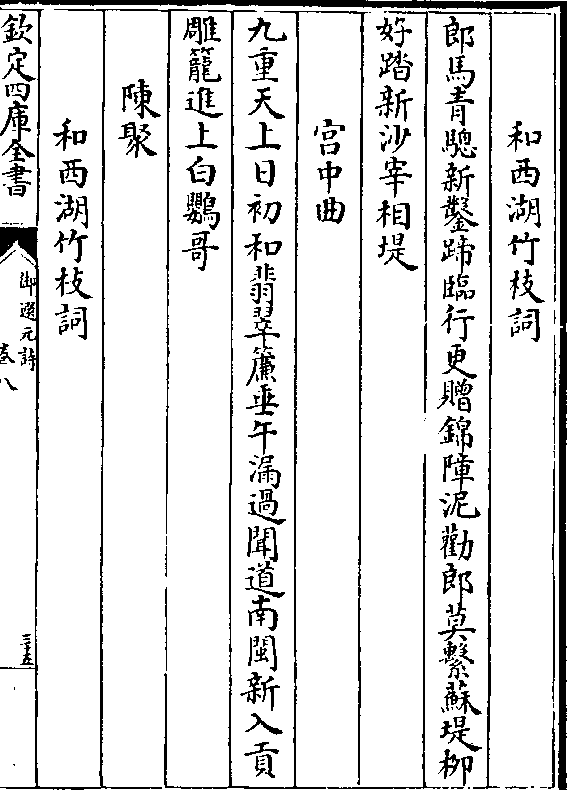 和西湖竹枝詞
郎馬青驄新鑿蹄臨行更贈錦障泥勸郎莫繫蘇堤栁
好踏新沙宰相堤
宫中曲
九重天上日初和翡翠簾垂午漏過聞道南閩新入貢
雕籠進上白鸚哥
陳聚
和西湖竹枝詞
欽定四庫全書
御選元詩
卷八
三十五